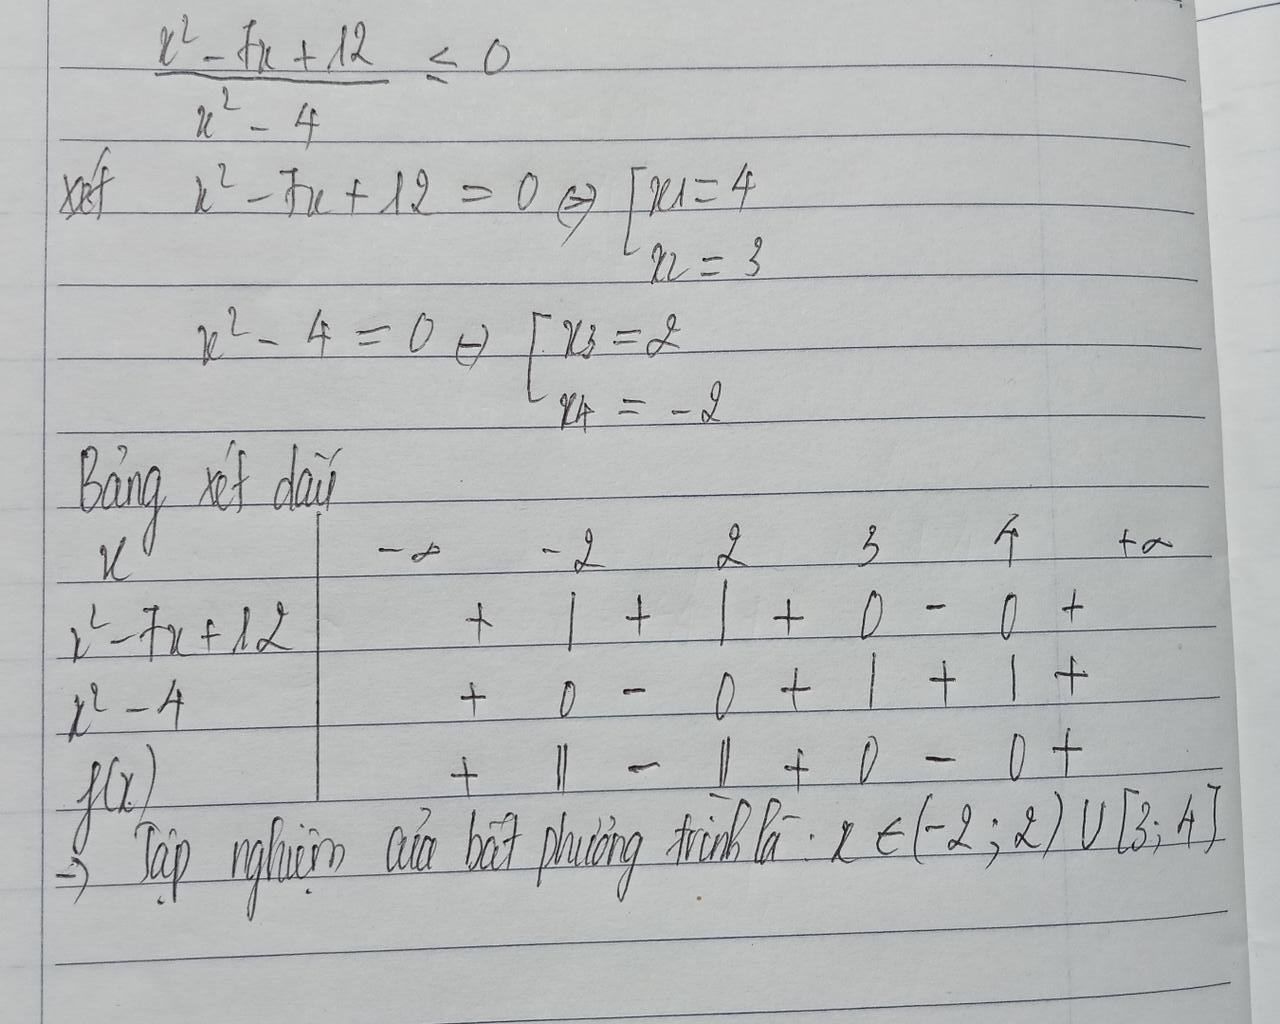 x² - 7x + 12 / x² - 4 ≤ 0
xét x² - 7x + 12 = 0 ⇔ [ x1 = 4
x2 = 3
x² - 4 = 0 ⇔ [ x3 = 2
x4 = -2
Bảng xét dấu
x | -∞ -2 2 3 4 +∞
x² - 7x + 12 | + | + | + 0 - 0 +
x² - 4 | + 0 - 0 + | + | +
f(x) | + || - || + 0 - 0 +
=> Tập nghiệm của bất phương trình là: x ∈ (-2; 2) ∪ [3; 4]